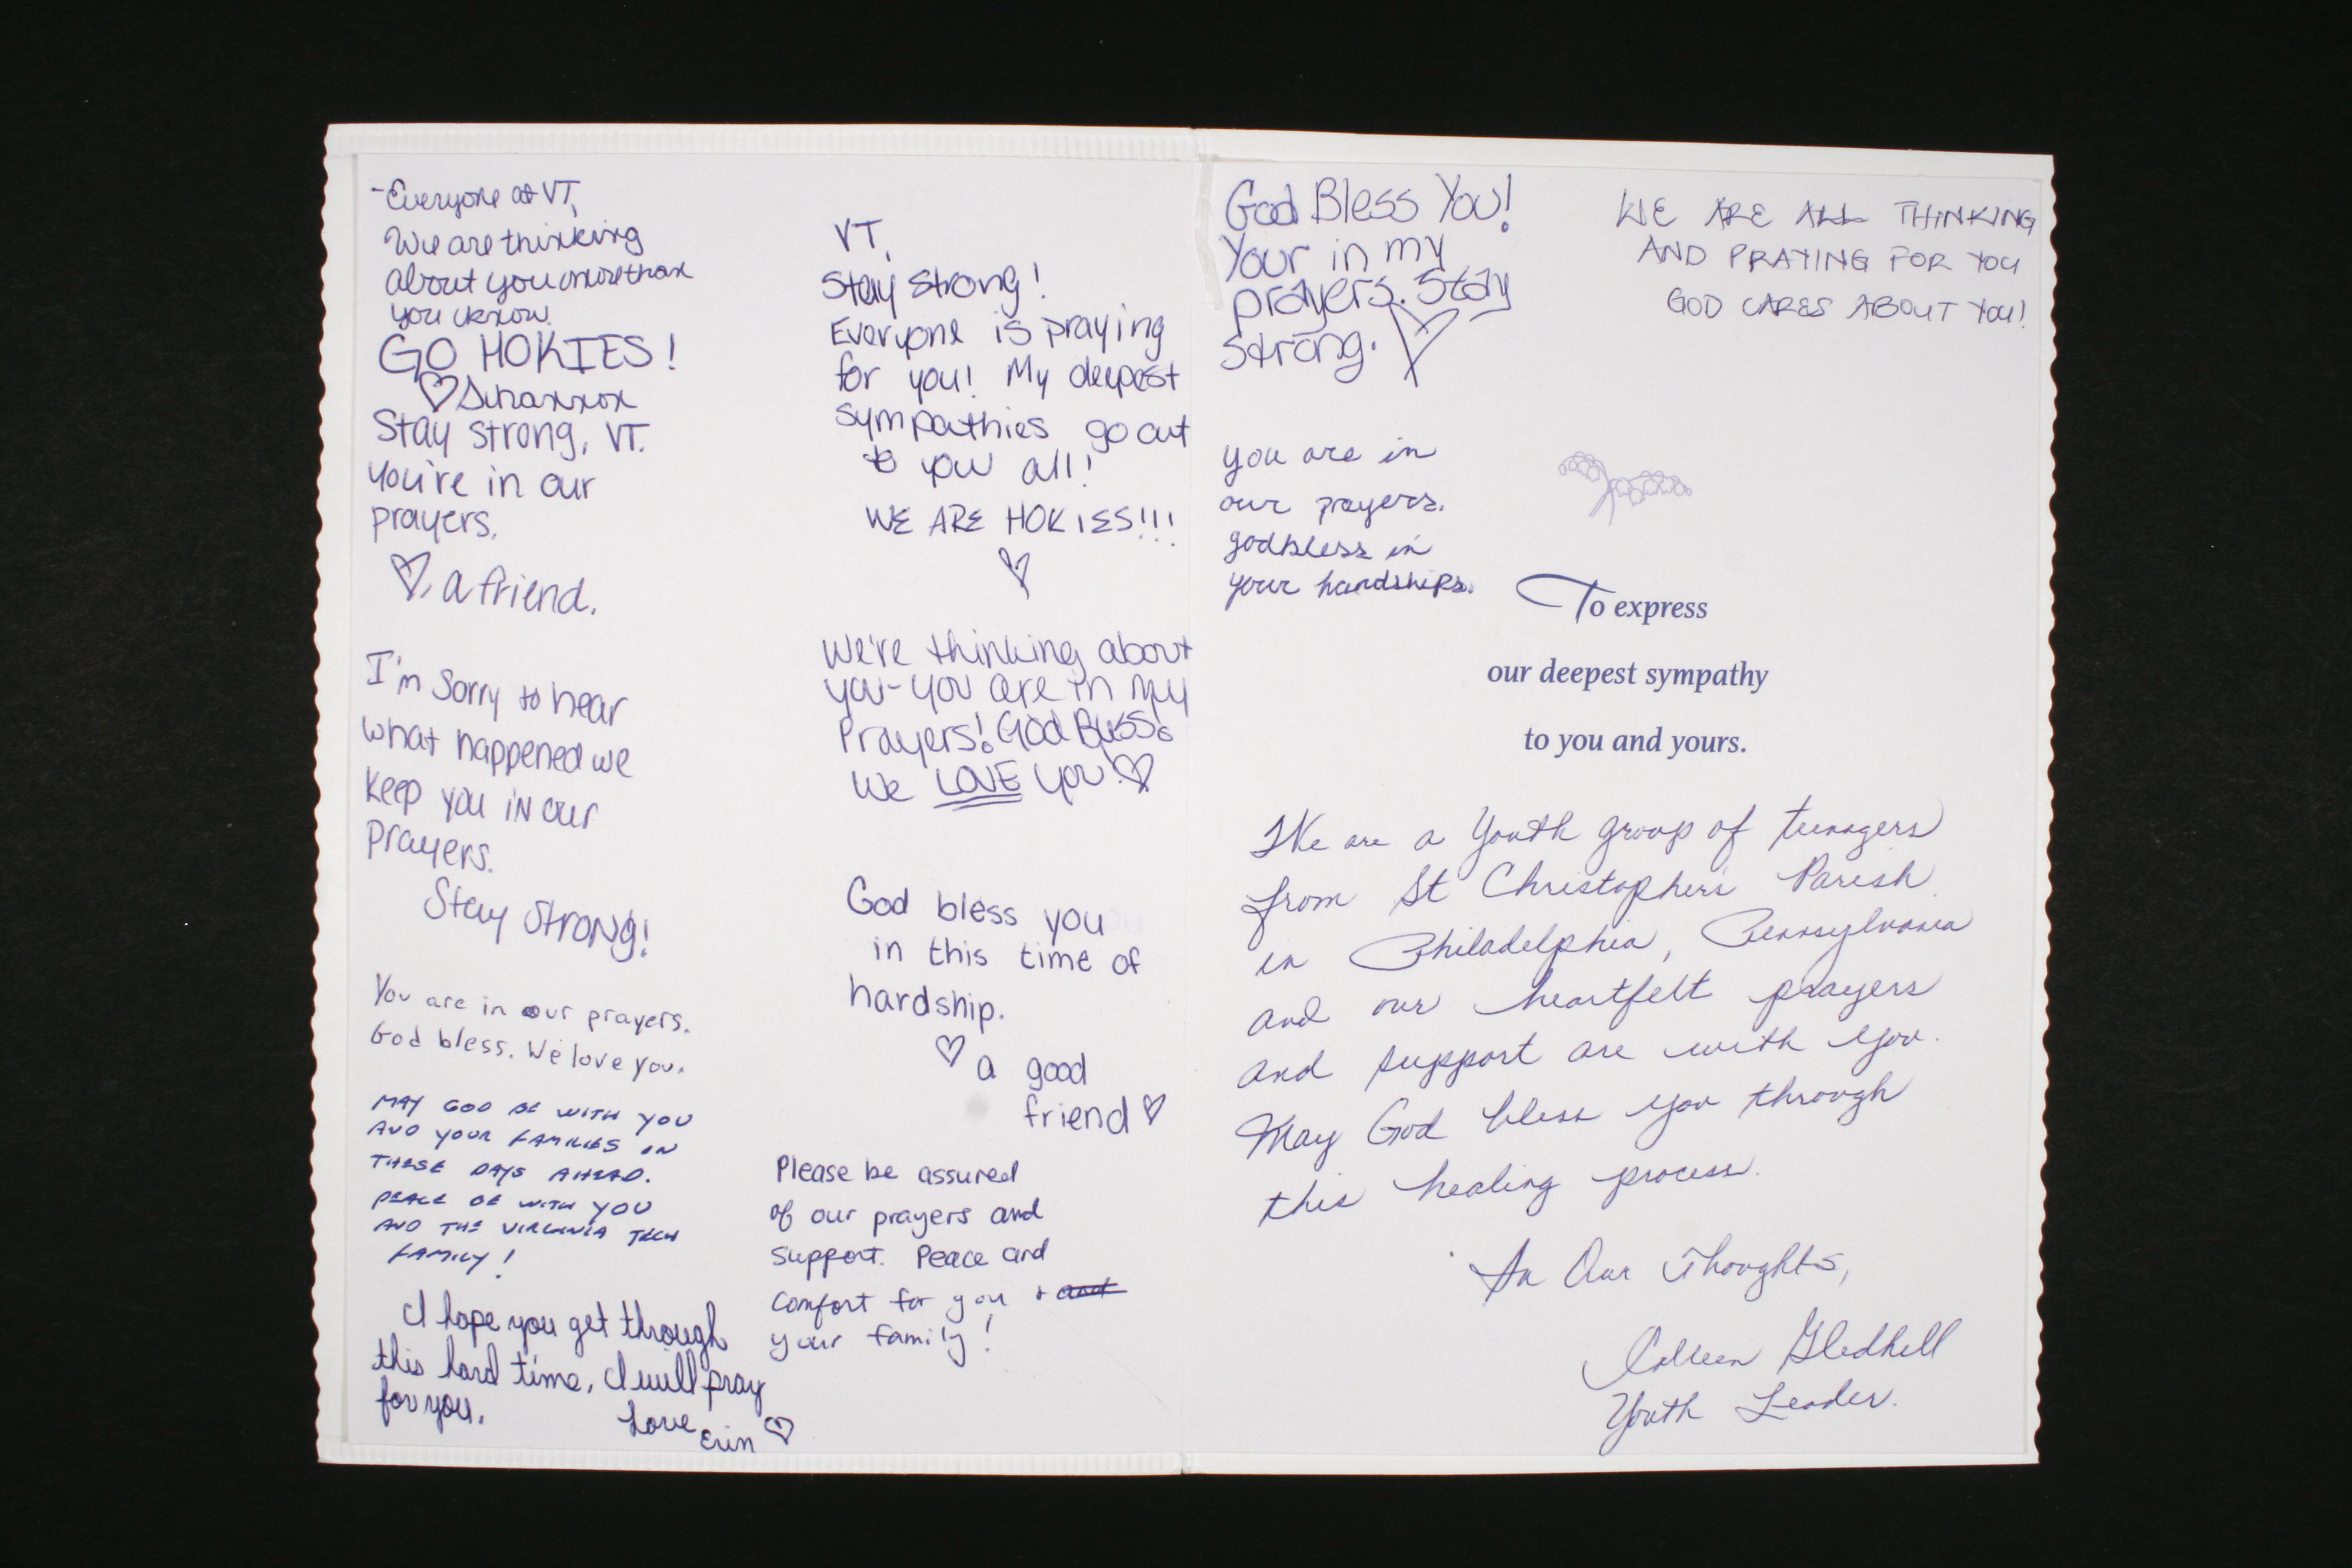 -Everyone at VT,
We are thinking
about you more than
you know.
GO HOKIES!
♡Shannon
Stay strong, VT.
You're in our
prayers.
♡, a friend.
I'm Sorry to hear
what happened we
keep you in our
prayers.
Stay Strong!
You are in our prayers.
God bless. We love you.
MAY GOD BE WITH YOU
AND YOUR FAMILIES IN
THESE DAYS AHEAD.
PEACE BE WITH YOU
AND THE VIRGINIA TECH
FAMILY!
I hope you get through
this hard time, I will pray
for you.
Love Erin ♡
VT,
Stay strong!
Everyone is praying
for you! My deepest
sympathies go out
to you all!
WE ARE HOKIES!!!
♡
We're thinking about
you-you are in my
Prayers! God Bless.
We LOVE you! ♡
God bless you
in this time of
hardship.
♡ a good
friend ♡
Please be assured
of our prayers and
support. Peace and
comfort for you + and
your family!
God Bless You!
Your in my
prayers. Stay
strong. ♡
WE ARE ALL THINKING
AND PRAYING FOR YOU
GOD CARES ABOUT YOU!
you are in
our prayers.
godbless in
your hardships.
To express
our deepest sympathy
to you and yours.
We are a Youth group of teenagers
from St Christopher's Parish
in Philadelphia, Pennsylvania
and our heartfelt prayers
and support are with you.
May God bless you through
this healing process.
In Our Thoughts,
Colleen Gledhill
Youth Leader.